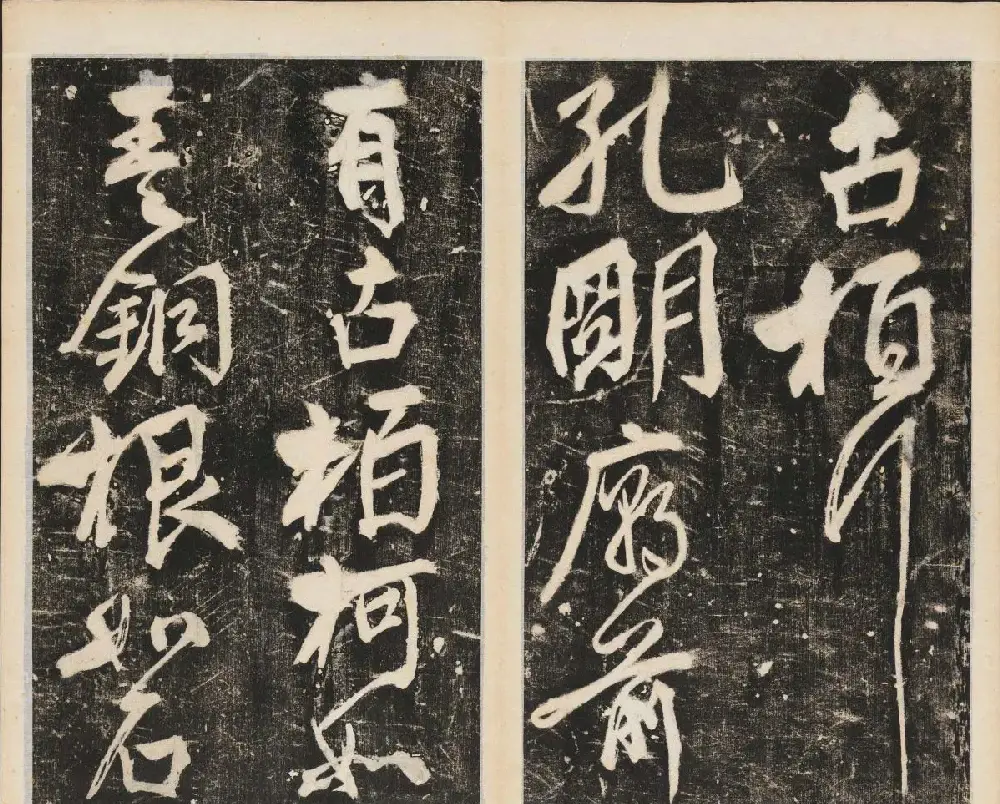 古柏行
孔明廟前
有古柏柯如
青銅根如石